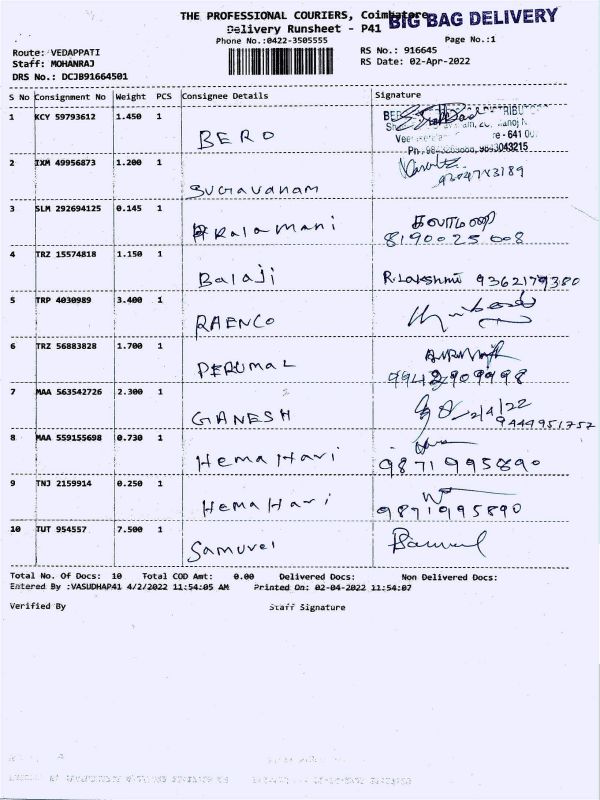 THE PROFESSIONAL COURIERS, Coimbatore
BIG BAG DELIVERY
Delivery Runsheet - P41
Phone No.:0422-3505555
Page No.:1
Route: VEDAPPATI
RS No.: 916645
Staff: MOHANRAJ
RS Date: 02-Apr-2022
DRS No.: DCJB91664501
S No Consignment No Weight PCS Consignee Details Signature
1 KCY 59793612 1.450 1 BERO
2 IXM 49956873 1.200 1 Sugavanam
3 SLM 292694125 0.145 1 Kalamani கலாமணி
8190025008
4 TRZ 15574818 1.150 1 Balaji R.Lakshmi 9362179380
5 TRP 4030989 3.400 1 RAENCO
6 TRZ 56883828 1.700 1 PERUMAL
9942909998
7 MAA 563542726 2.300 1 GANESH 2/4/22
9444951757
8 MAA 559155698 0.730 1 Hema Hari
9871995890
9 TNJ 2159914 0.250 1 Hema Hari
9871995890
10 TUT 954557 7.500 1 Samuvel Samuel
Total No. Of Docs: 10 Total COD Amt: 0.00 Delivered Docs: Non Delivered Docs:
Entered By :VASUDHAP41 4/2/2022 11:54:05 AM Printed On: 02-04-2022 11:54:07
Verified By Staff Signature